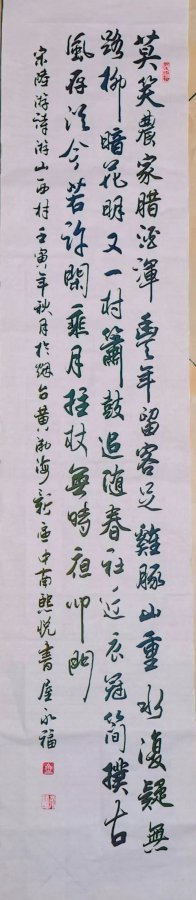 莫笑農家臘酒渾豐年留客足雞豚山重水復疑無
路柳暗花明又一村簫鼓追随春社近衣冠簡撲古
風存從今若許閑乘月拄杖無時夜叩門
宋陸游詩游山西村壬寅年秋月於烟台黄渤海新區中南熙悦書屋永福